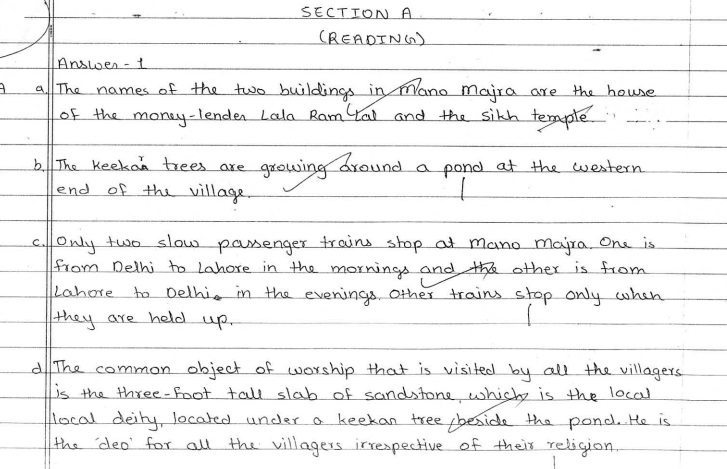 SECTION A
(READING)
Answer - 1
a. The names of the two buildings in Mano Majra are the house
of the money-lender Lala Ram Lal and the sikh temple
b. The keekar trees are growing around a pond at the western
end of the village.
c. Only two slow passenger trains stop at Mano Majra. One is
from Delhi to Lahore in the mornings and the other is from
Lahore to Delhi in the evenings. Other trains stop only when
they are held up.
d. The common object of worship that is visited by all the villagers
is the three-foot tall slab of sandstone, which is the local
local deity, located under a keekar tree beside the pond. He is
the 'deo' for all the villagers irrespective of their religion.